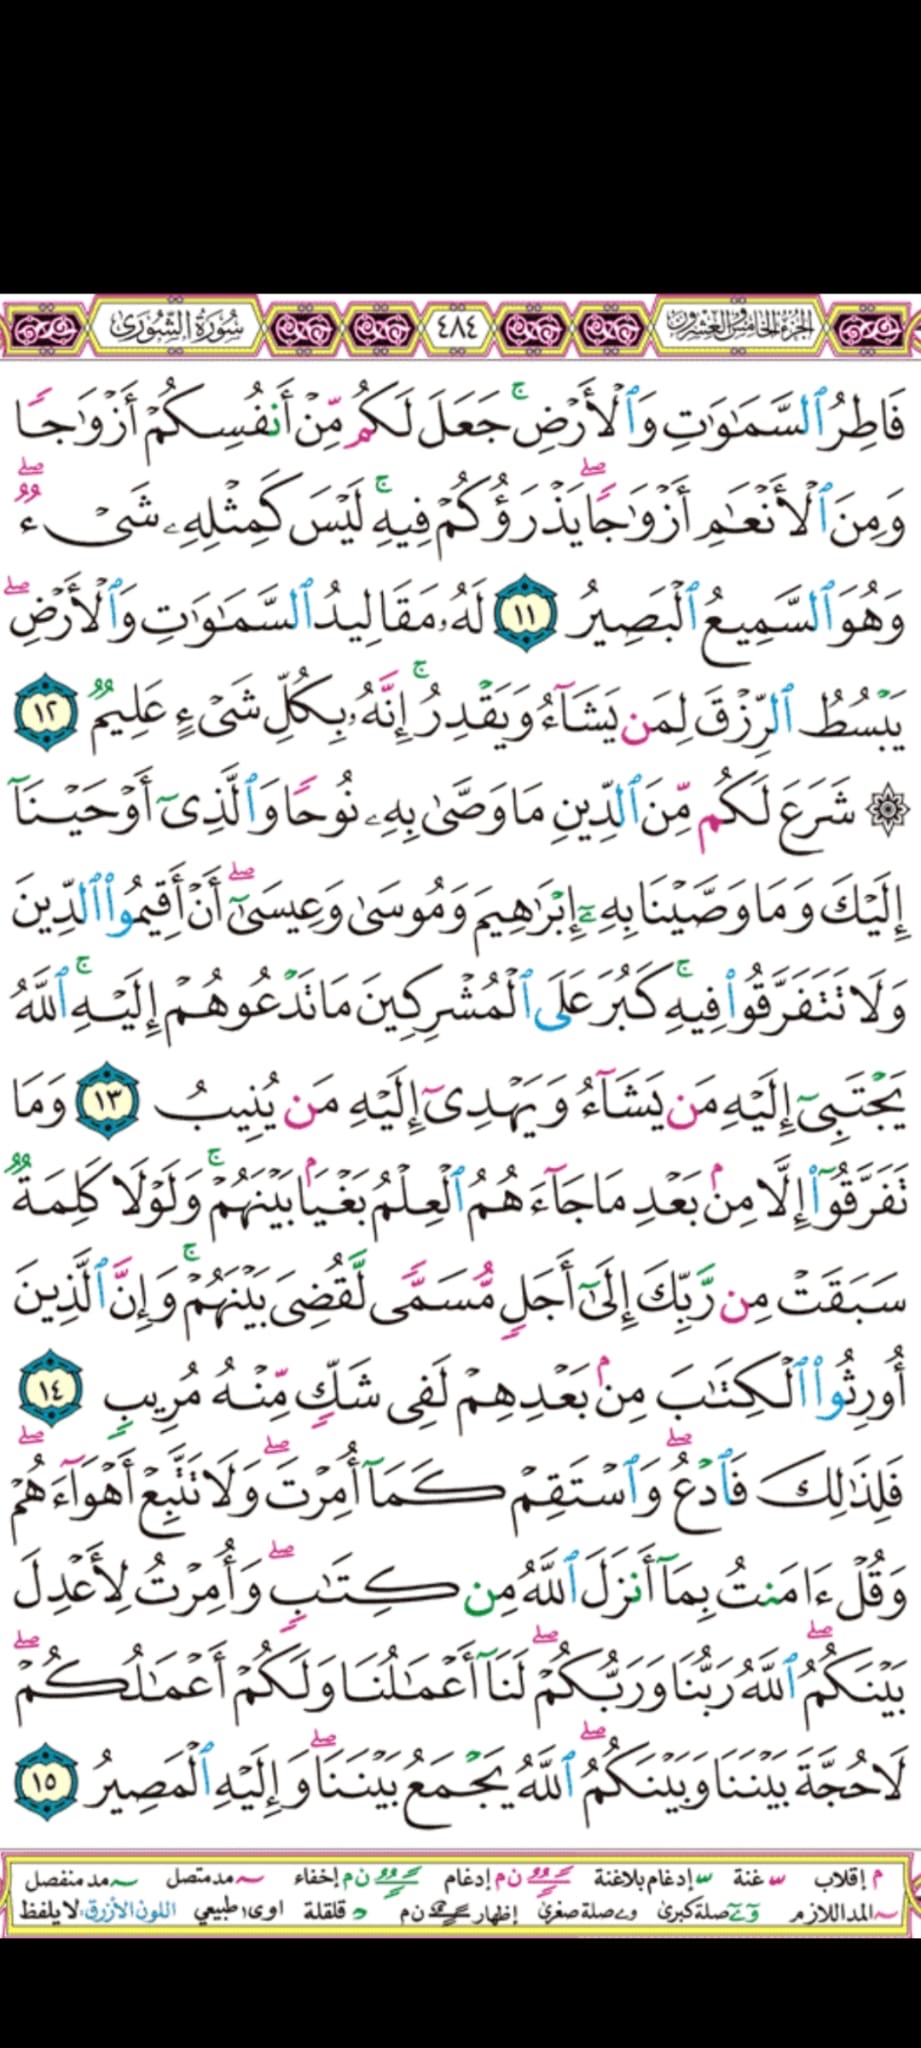 الجزء الخامس والعشرون
٤٨٤
سُورَةُ الشُّورَىٰ
فَاطِرُ ٱلسَّمَٰوَٰتِ وَٱلْأَرْضِ ۚ جَعَلَ لَكُم مِّنْ أَنفُسِكُمْ أَزْوَٰجًا
وَمِنَ ٱلْأَنْعَٰمِ أَزْوَٰجًا ۖ يَذْرَؤُكُمْ فِيهِ ۚ لَيْسَ كَمِثْلِهِۦ شَىْءٌ ۖ
وَهُوَ ٱلسَّمِيعُ ٱلْبَصِيرُ ١١ لَهُۥ مَقَالِيدُ ٱلسَّمَٰوَٰتِ وَٱلْأَرْضِ ۖ
يَبْسُطُ ٱلرِّزْقَ لِمَن يَشَآءُ وَيَقْدِرُ ۚ إِنَّهُۥ بِكُلِّ شَىْءٍ عَلِيمٌ ١٢
۞ شَرَعَ لَكُم مِّنَ ٱلدِّينِ مَا وَصَّىٰ بِهِۦ نُوحًا وَٱلَّذِىٓ أَوْحَيْنَآ
إِلَيْكَ وَمَا وَصَّيْنَا بِهِۦٓ إِبْرَٰهِيمَ وَمُوسَىٰ وَعِيسَىٰٓ ۖ أَنْ أَقِيمُوا۟ ٱلدِّينَ
وَلَا تَتَفَرَّقُوا۟ فِيهِ ۚ كَبُرَ عَلَى ٱلْمُشْرِكِينَ مَا تَدْعُوهُمْ إِلَيْهِ ۚ ٱللَّهُ
يَجْتَبِىٓ إِلَيْهِ مَن يَشَآءُ وَيَهْدِىٓ إِلَيْهِ مَن يُنِيبُ ١٣ وَمَا
تَفَرَّقُوٓا۟ إِلَّا مِنۢ بَعْدِ مَا جَآءَهُمُ ٱلْعِلْمُ بَغْيًۢا بَيْنَهُمْ ۚ وَلَوْلَا كَلِمَةٌ
سَبَقَتْ مِن رَّبِّكَ إِلَىٰٓ أَجَلٍ مُّسَمًّى لَّقُضِىَ بَيْنَهُمْ ۚ وَإِنَّ ٱلَّذِينَ
أُورِثُوا۟ ٱلْكِتَٰبَ مِنۢ بَعْدِهِمْ لَفِى شَكٍّ مِّنْهُ مُرِيبٍ ١٤
فَلِذَٰلِكَ فَٱدْعُ ۖ وَٱسْتَقِمْ كَمَآ أُمِرْتَ ۖ وَلَا تَتَّبِعْ أَهْوَآءَهُمْ ۖ
وَقُلْ ءَامَنتُ بِمَآ أَنزَلَ ٱللَّهُ مِن كِتَٰبٍ ۖ وَأُمِرْتُ لِأَعْدِلَ
بَيْنَكُمُ ۖ ٱللَّهُ رَبُّنَا وَرَبُّكُمْ ۖ لَنَآ أَعْمَٰلُنَا وَلَكُمْ أَعْمَٰلُكُمْ ۖ
لَا حُجَّةَ بَيْنَنَا وَبَيْنَكُمُ ۖ ٱللَّهُ يَجْمَعُ بَيْنَنَا ۖ وَإِلَيْهِ ٱلْمَصِيرُ ١٥
م إقلاب غنة إدغام بلاغنة ن م إدغام ن م إخفاء مد متصل مد منفصل
المد اللازم صلة كبرى صلة صغرى إظهار ن م قلقلة اوى طبيعي اللون الأزرق: لا يلفظ